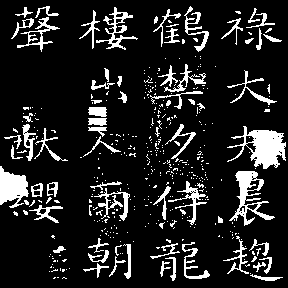 祿大夫晨趨
鶴禁夕侍龍
樓出入兩朝
聲猷纓